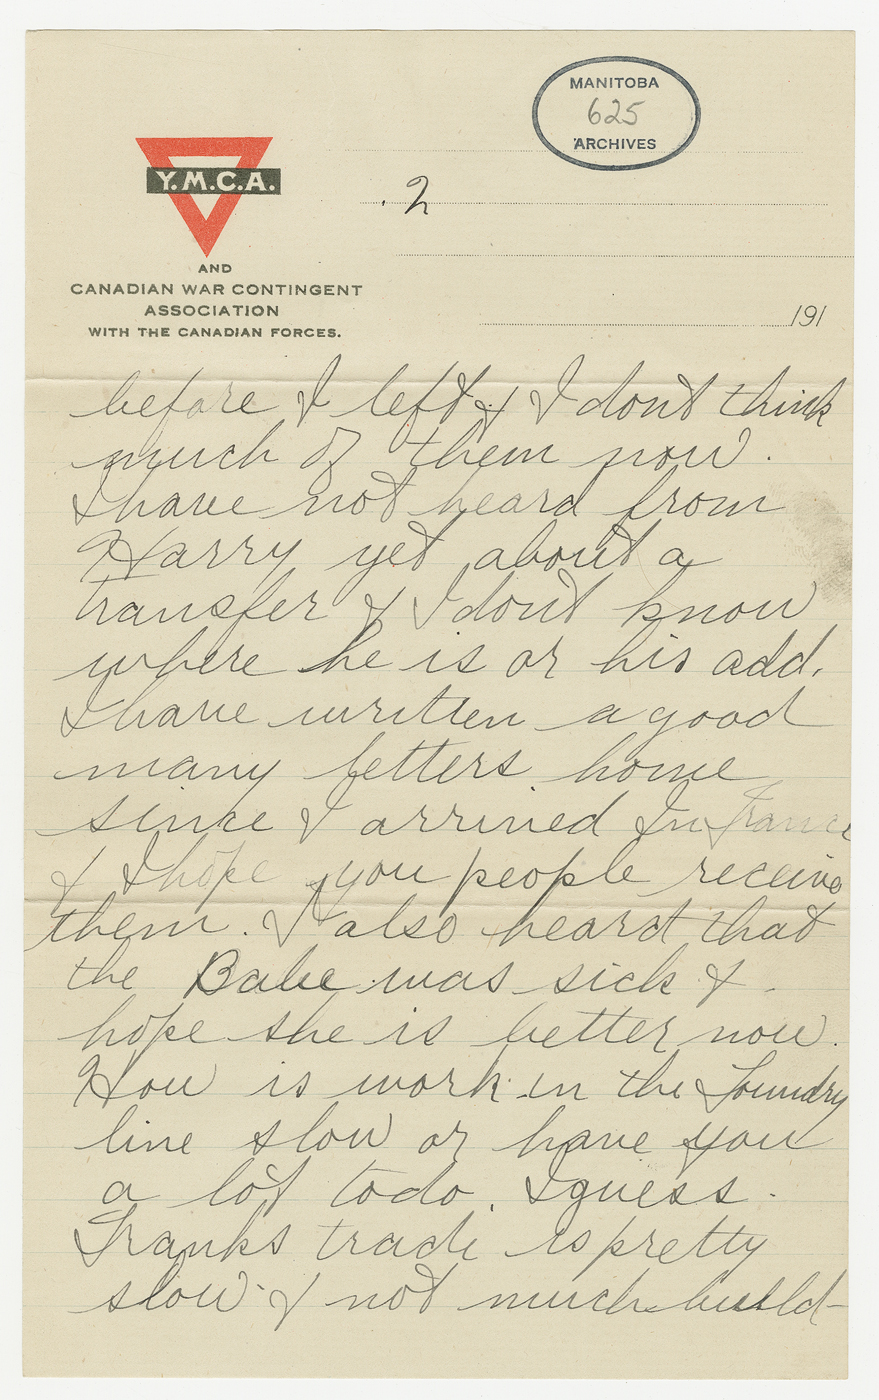 MANITOBA
625
ARCHIVES
Y.M.C.A.
AND
CANADIAN WAR CONTINGENT
ASSOCIATION
WITH THE CANADIAN FORCES.
2
191
before I left & I dont think
much of them now.
I have not heard from
Harry yet about a
transfer & I dont know
where he is or his add.
I have written a good
many letters home
since I arrived In France
& I hope you people receive
them. I also heard that
the Babe was sick &
hope she is better now.
How is work in the Foundry
line slow or have you
a lot to do. I guess.
Franks trade is pretty
slow & not much build-